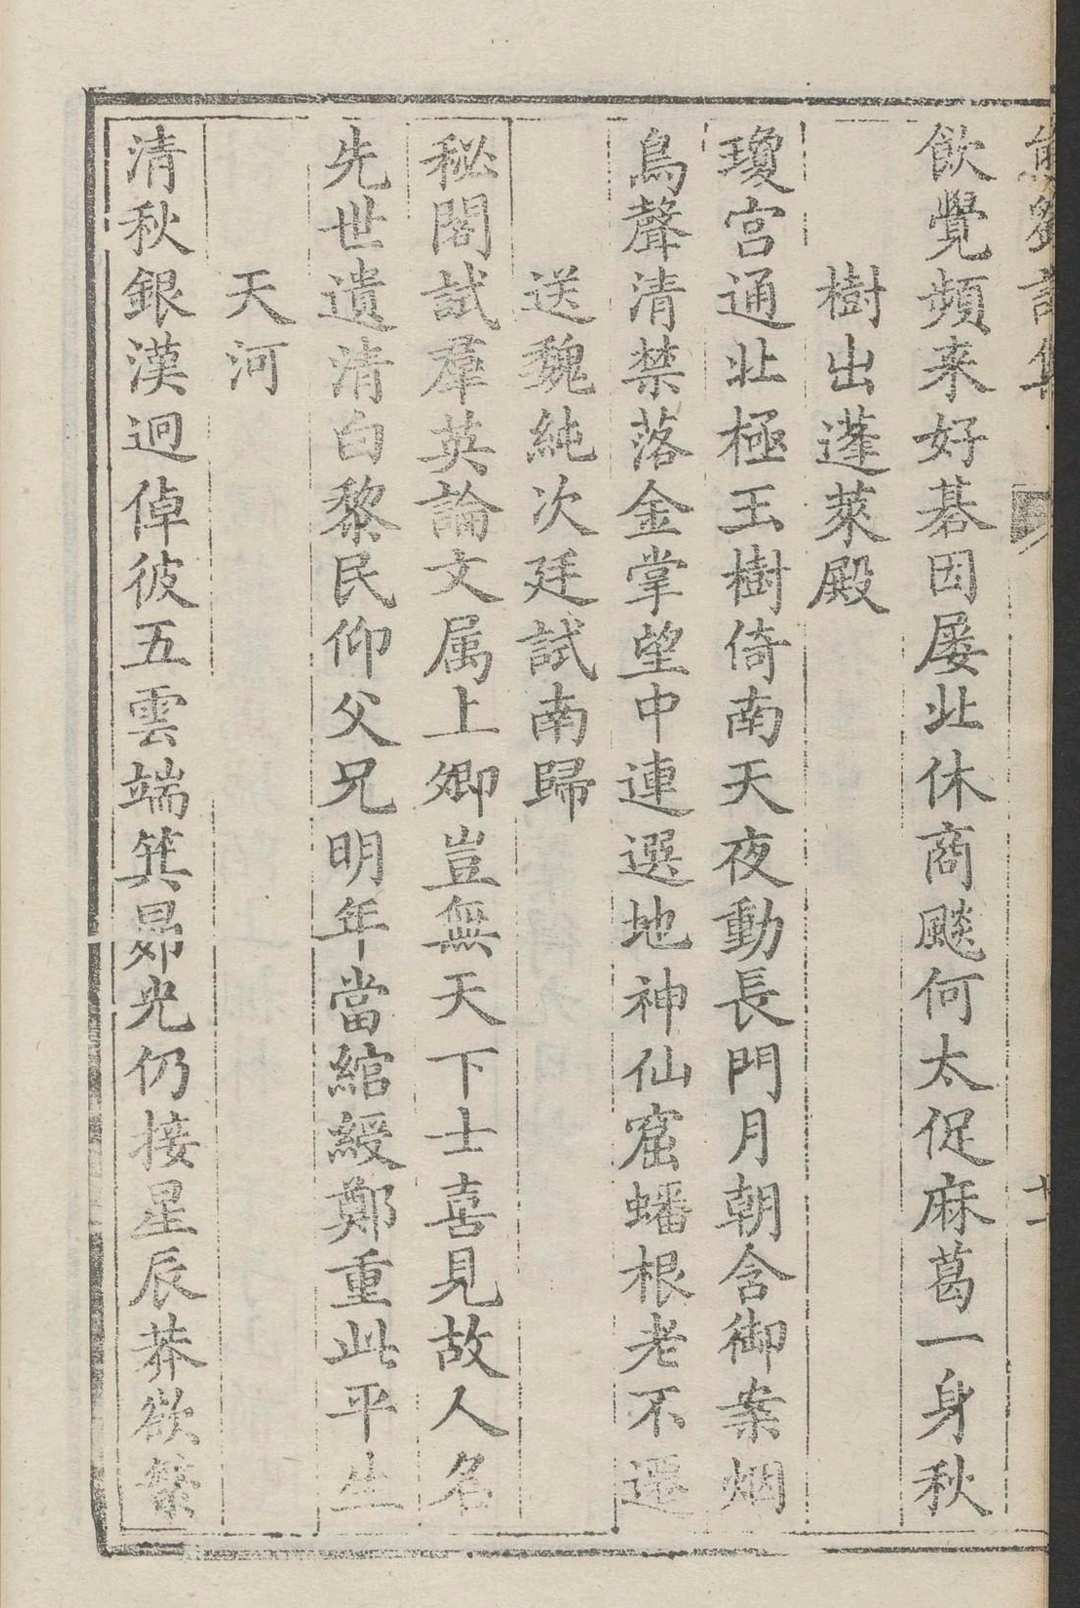 飲覺頻来好碁因屡北休商飈何太促麻葛一身秋
樹出蓬萊殿
瓊宮通北極玉樹倚南天夜動長門月朝含御案烟
鳥聲清禁落金掌望中連選地神仙窟蟠根老不遷
送魏純次廷試南歸
秘閣試羣英論文属上卿豈無天下士喜見故人名
先世遺清白黎民仰父兄明年當綰綬鄭重此平生
天河
清秋銀漢迥倬彼五雲端箕昴光仍接星辰莽欲